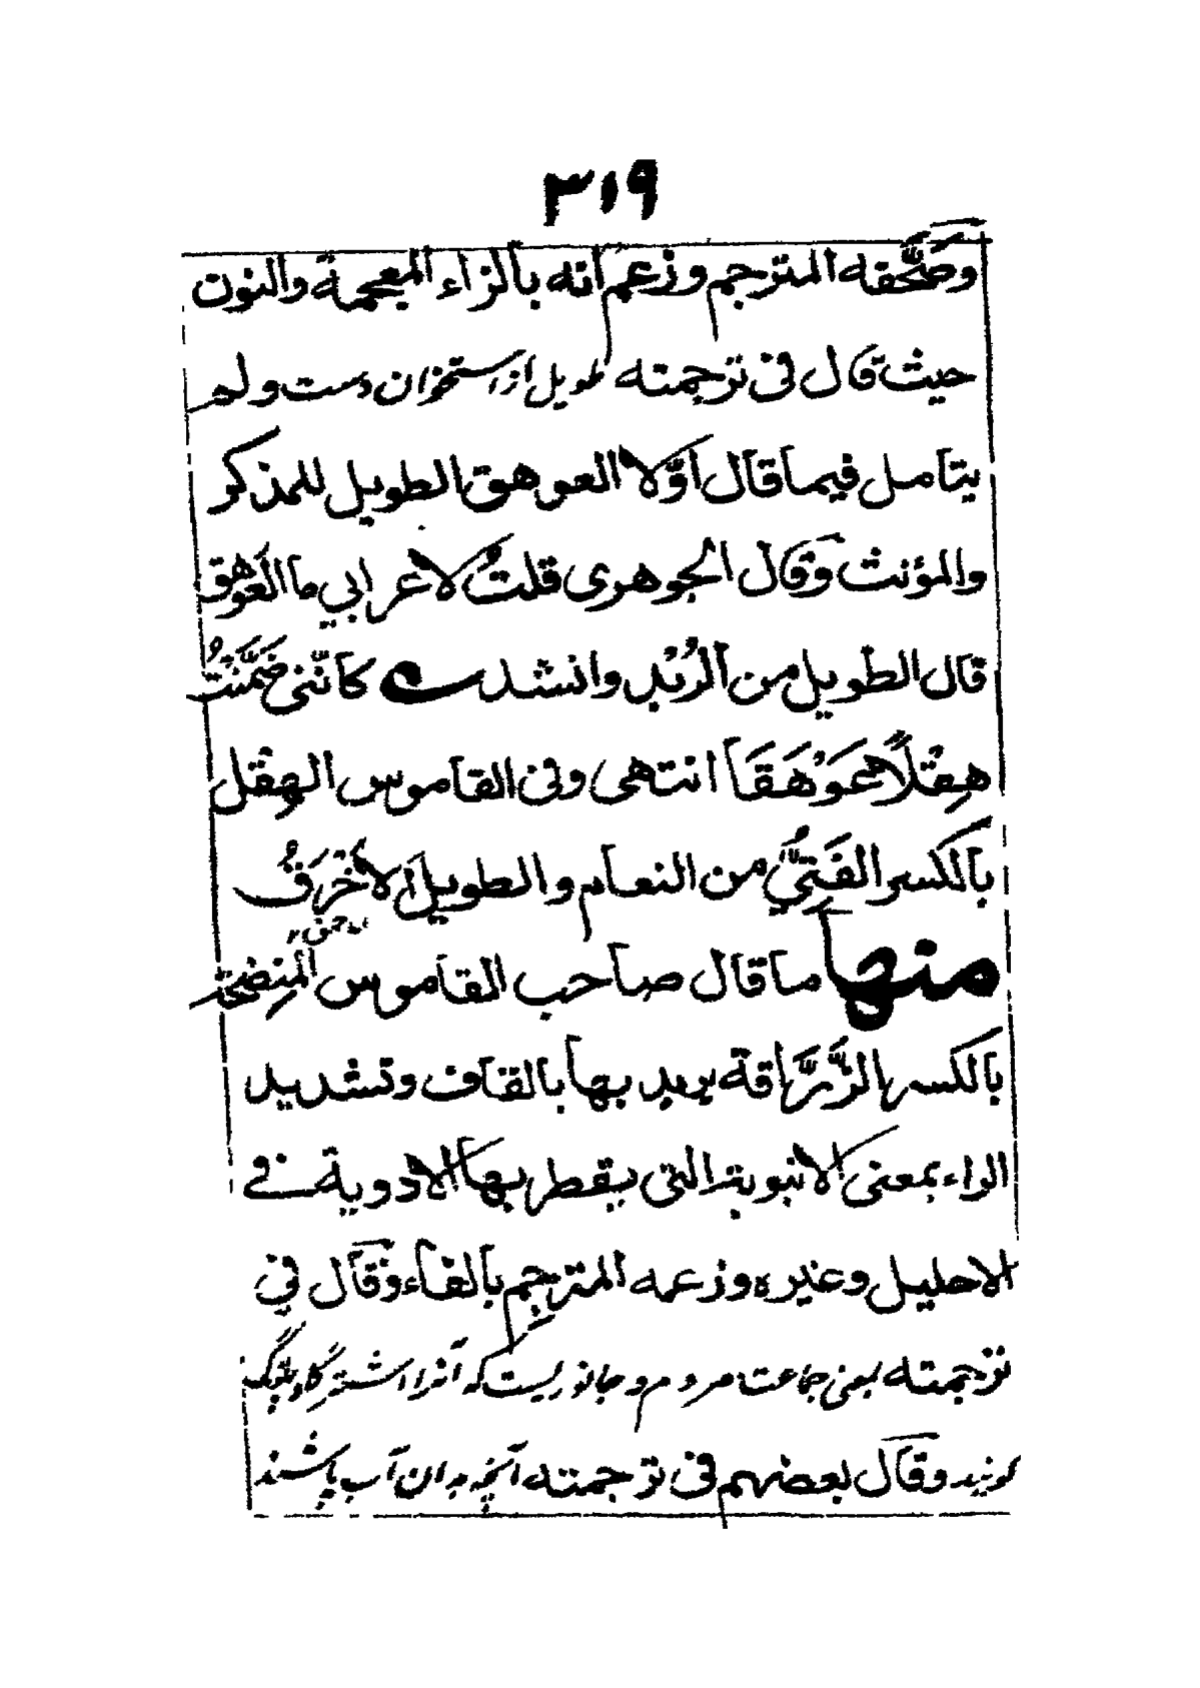 ٣١٩
وصَحَّفه المترجم وزعم انه بالزاء المعجمة والنون
حيث قال فى ترجمته طويل از استخوان دست ولم
يتامل فيما قال اوّلا العوهق الطويل للمذكر
والمؤنث وقال الجوهرى قلتُ لاعرابي ما العَوْهق
قال الطويل من الرُبْدِ وانشد ے كانّنى ضَمَّنْتُ
هِقْلًا عَوْهَقَا انتهى وفى القاموس الهِقْل
بالكسر الفَتِيُّ من النعام والطويل الاَخْرَقُ
منها ما قال صاحب القاموس المِنضحة
بالكسر الزَّرَّاقة يريد بها بالقاف وتشديد
الراء بمعنى الانبوبة التى يقطر بها الادوية فے
الاحليل وغيره وزعمه المترجم بالفاء وقال في
ترجمته بمعنى جماعت مردم و جانوريست كه آنرا اشتر گاو پلنگ
گونيد وقال بعضهم فى ترجمته آنچه بدان آب پاشند